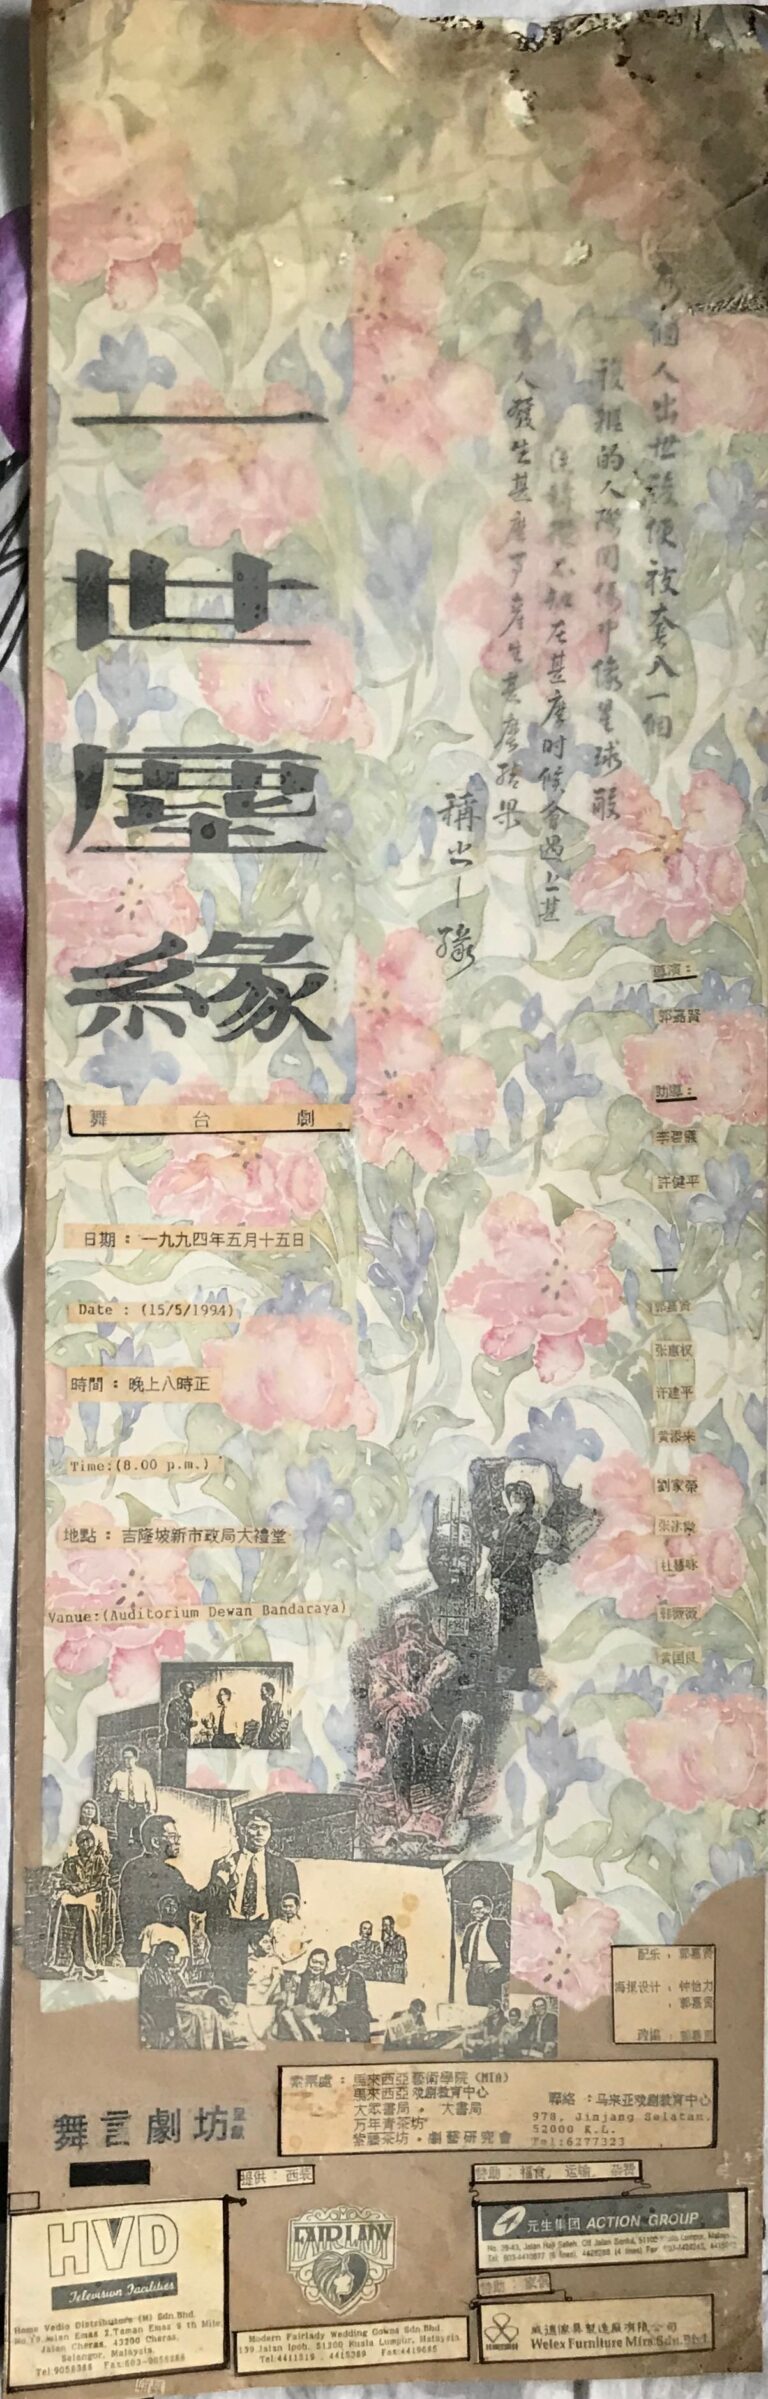 一世塵緣
舞台劇
個人出世後便被套入一個
的人際關係中像星球般
不知在甚麼時候會遇上甚
人發生甚麼事產生甚麼結果
稱之—緣
導演：
郭嘉賢
助導：
李碧儀
許健平
郭嘉賢
张惠权
许建平
黄添来
劉家榮
杜慧咏
郭薇薇
黄国良
日期：一九九四年五月十五日
Date : (15/5/1994)
時間：晚上八時正
Time:(8.00 p.m.)
地點：吉隆坡新市政局大禮堂
Vanue:(Auditorium Dewan Bandaraya)
配乐：郭嘉贤
海报设计：钟怡力
：郭嘉贤
索票處：馬來西亞藝術學院 (MIA)
馬來西亞戏劇教育中心
大眾書局。大書局
万年青茶坊
紫藝茶坊。劇藝研究會
聯絡：马来亚戏剧教育中心
978, Jinjang Selatan,
52000 K.L.
Tel:6277323
舞言劇坊呈獻
HVD
Television Facilities
Home Vedio Distributors (M) Sdn.Bhd.
No.19 Jalan Emas 2.Taman Emas 9 th Mile
Jalan Cheras, 43200 Cheras,
Selangor, Malaysia.
提供：西裝
FAIRLADY
Modern Fairlady Wedding Gowns Sdn.Bhd.
139 Jalan Ipoh, 51200 Kuala Lumpur, Malaysia
Tel:4411519 . 4415389 Fax:4419685
赞助：福食，运输，杂費
元生集团 ACTION GROUP
赞助：家俬
威適傢具製造廠有限公司
Welex Furniture Mfrs Sdn.Bhd.